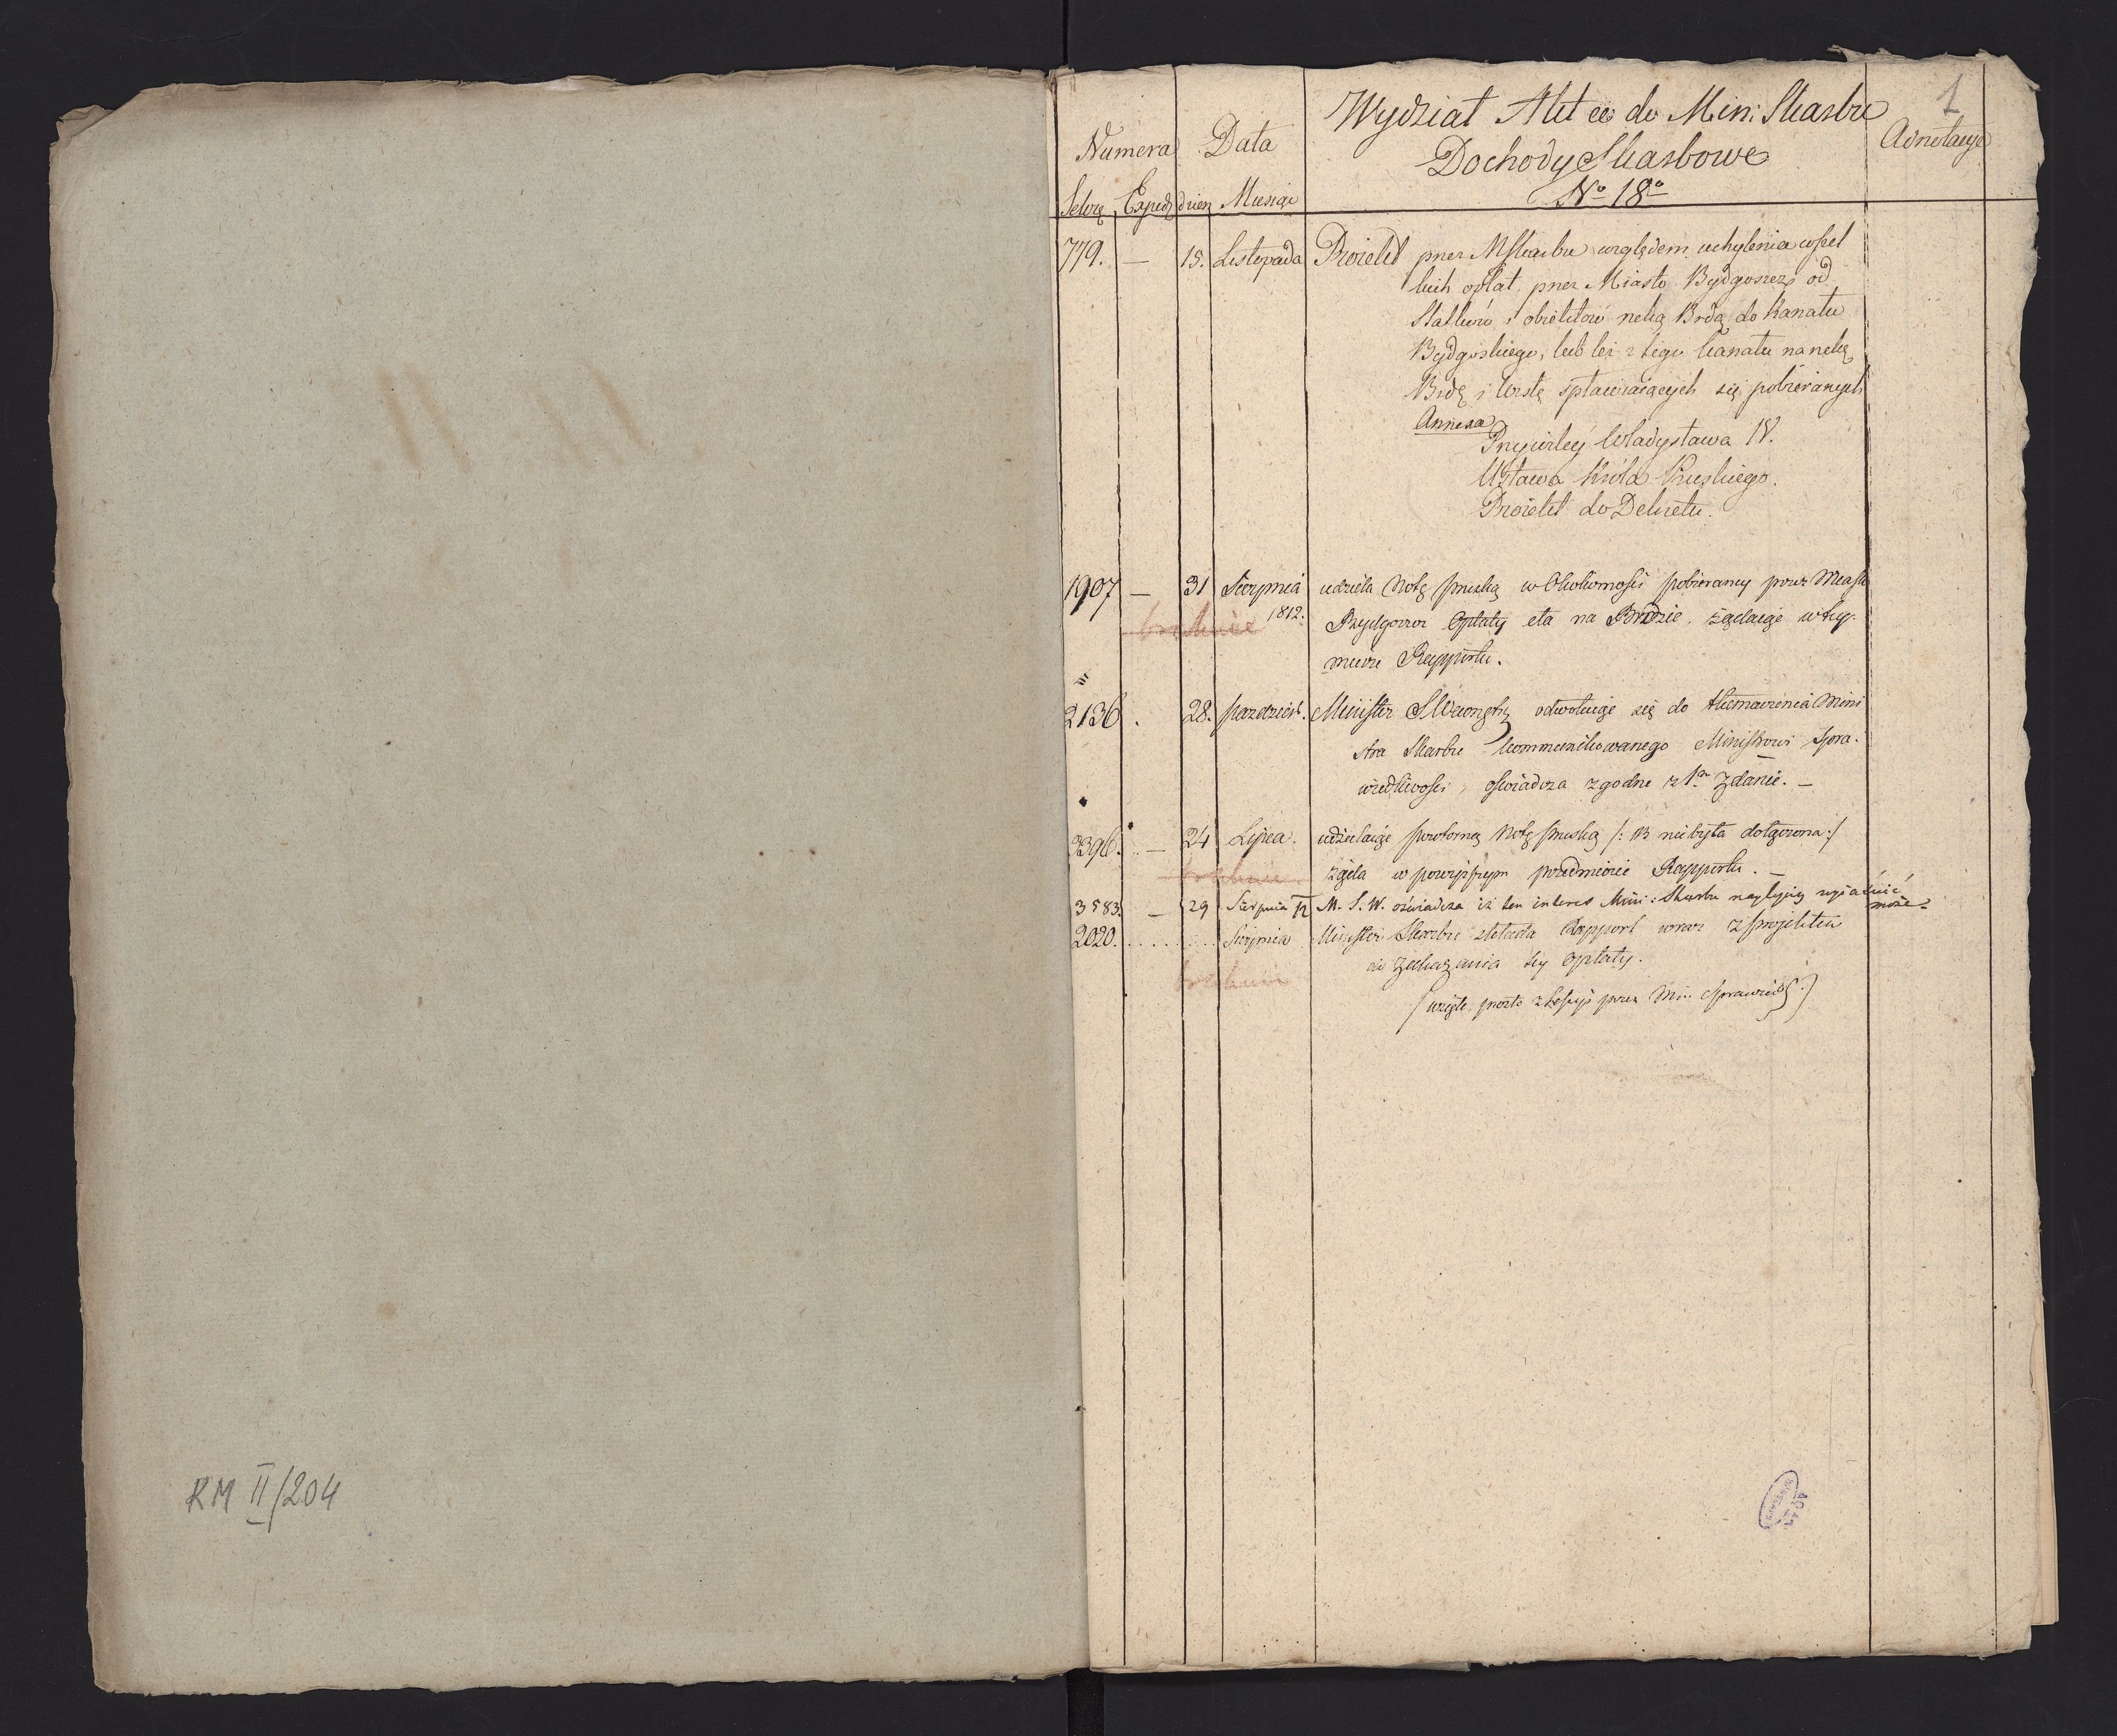 RM II/204
1
Wydział Akt do Min: Skarbu
Dochody Skarbowe
No 18o
Numera Data Adnotacye
Exped dzień Miesiąc
779. — 15. Listopada Proiekt przez MSkarbu względem uchylenia wszel
kich opłat, przez Miasto Bydgoszcz od
Statków i obiektów rzeką Brdą do Kanału
Bydgoskiego, lub też z tego kanału na rzekę
Brdę i Wisłę spławiaiących się pobieranych
Annexa
Przywiley Władysława IV.
Ustawa Króla Pruskiego.
Proiekt do Dekretu.
1907 — 31 Sierpnia udziela Notę pruską w Okoliczności pobieraney przez Miasto
1812. Bydgoszcz Opłaty cła na Brdzie, żądaiąc w tey
brakuie
mierze Rapportu.
2136. 28. październ. Minister SWewnętrz odwołuiąc się do tłumaczenia Mini
stra Skarbu kommunikowanego Ministrowi Spra-
wiedliwości, oświadcza zgodne z 1m Zdanie. —
2396. — 24 Lipca. udzielaiąc powtorną Notę pruską /: B nie była dołączona :/
brakuie żąda w powyższym przedmiocie Rapportu. —
3583. — 29 Sierpnia 12 M. S. W. oświadcza iż ten interes Mini: Skarbu naylepiey wyiaśnić
może.
2020. Sierpnia Minister Skarbu składa Rapport wraz z projektem
do Zakazania tey opłaty.
brakuie
(wzięte przez Min. Sprawiedl.)